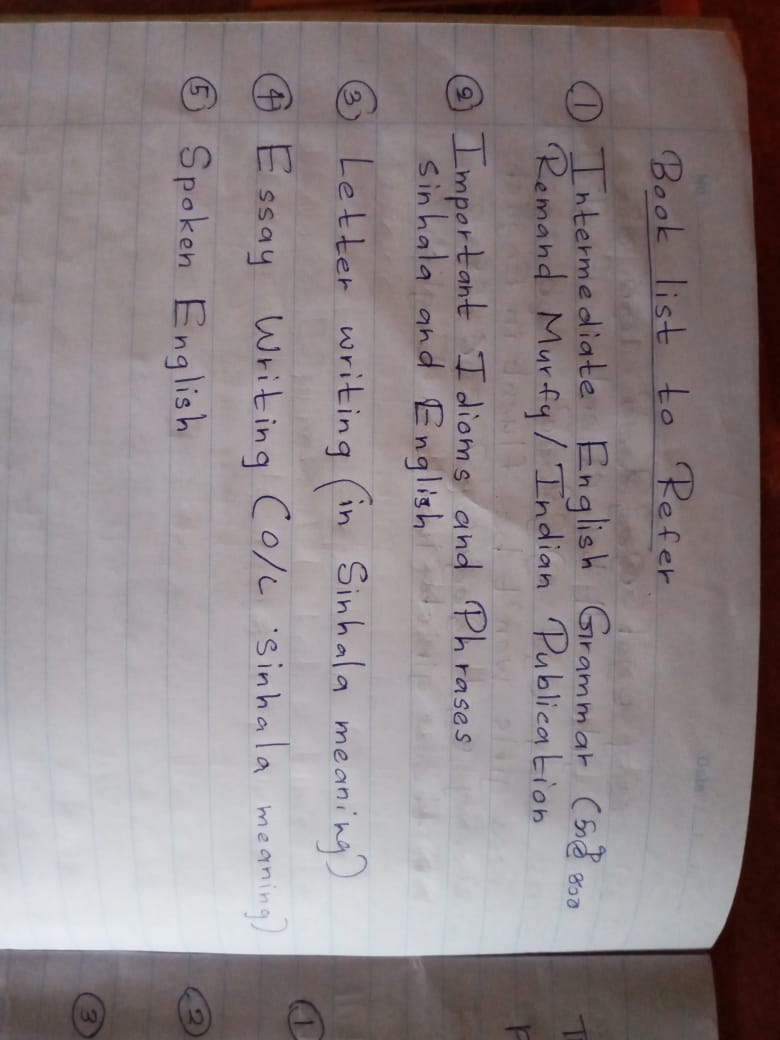 No
Date
Book list to Refer
① Intermediate English Grammar (
Remand Murfy / Indian Publication
② Important Idioms and Phrases
sinhala and English
③ Letter writing (in Sinhala meaning)
④ Essay Writing (O/L sinhala meaning)
⑤ Spoken English
①
②
③